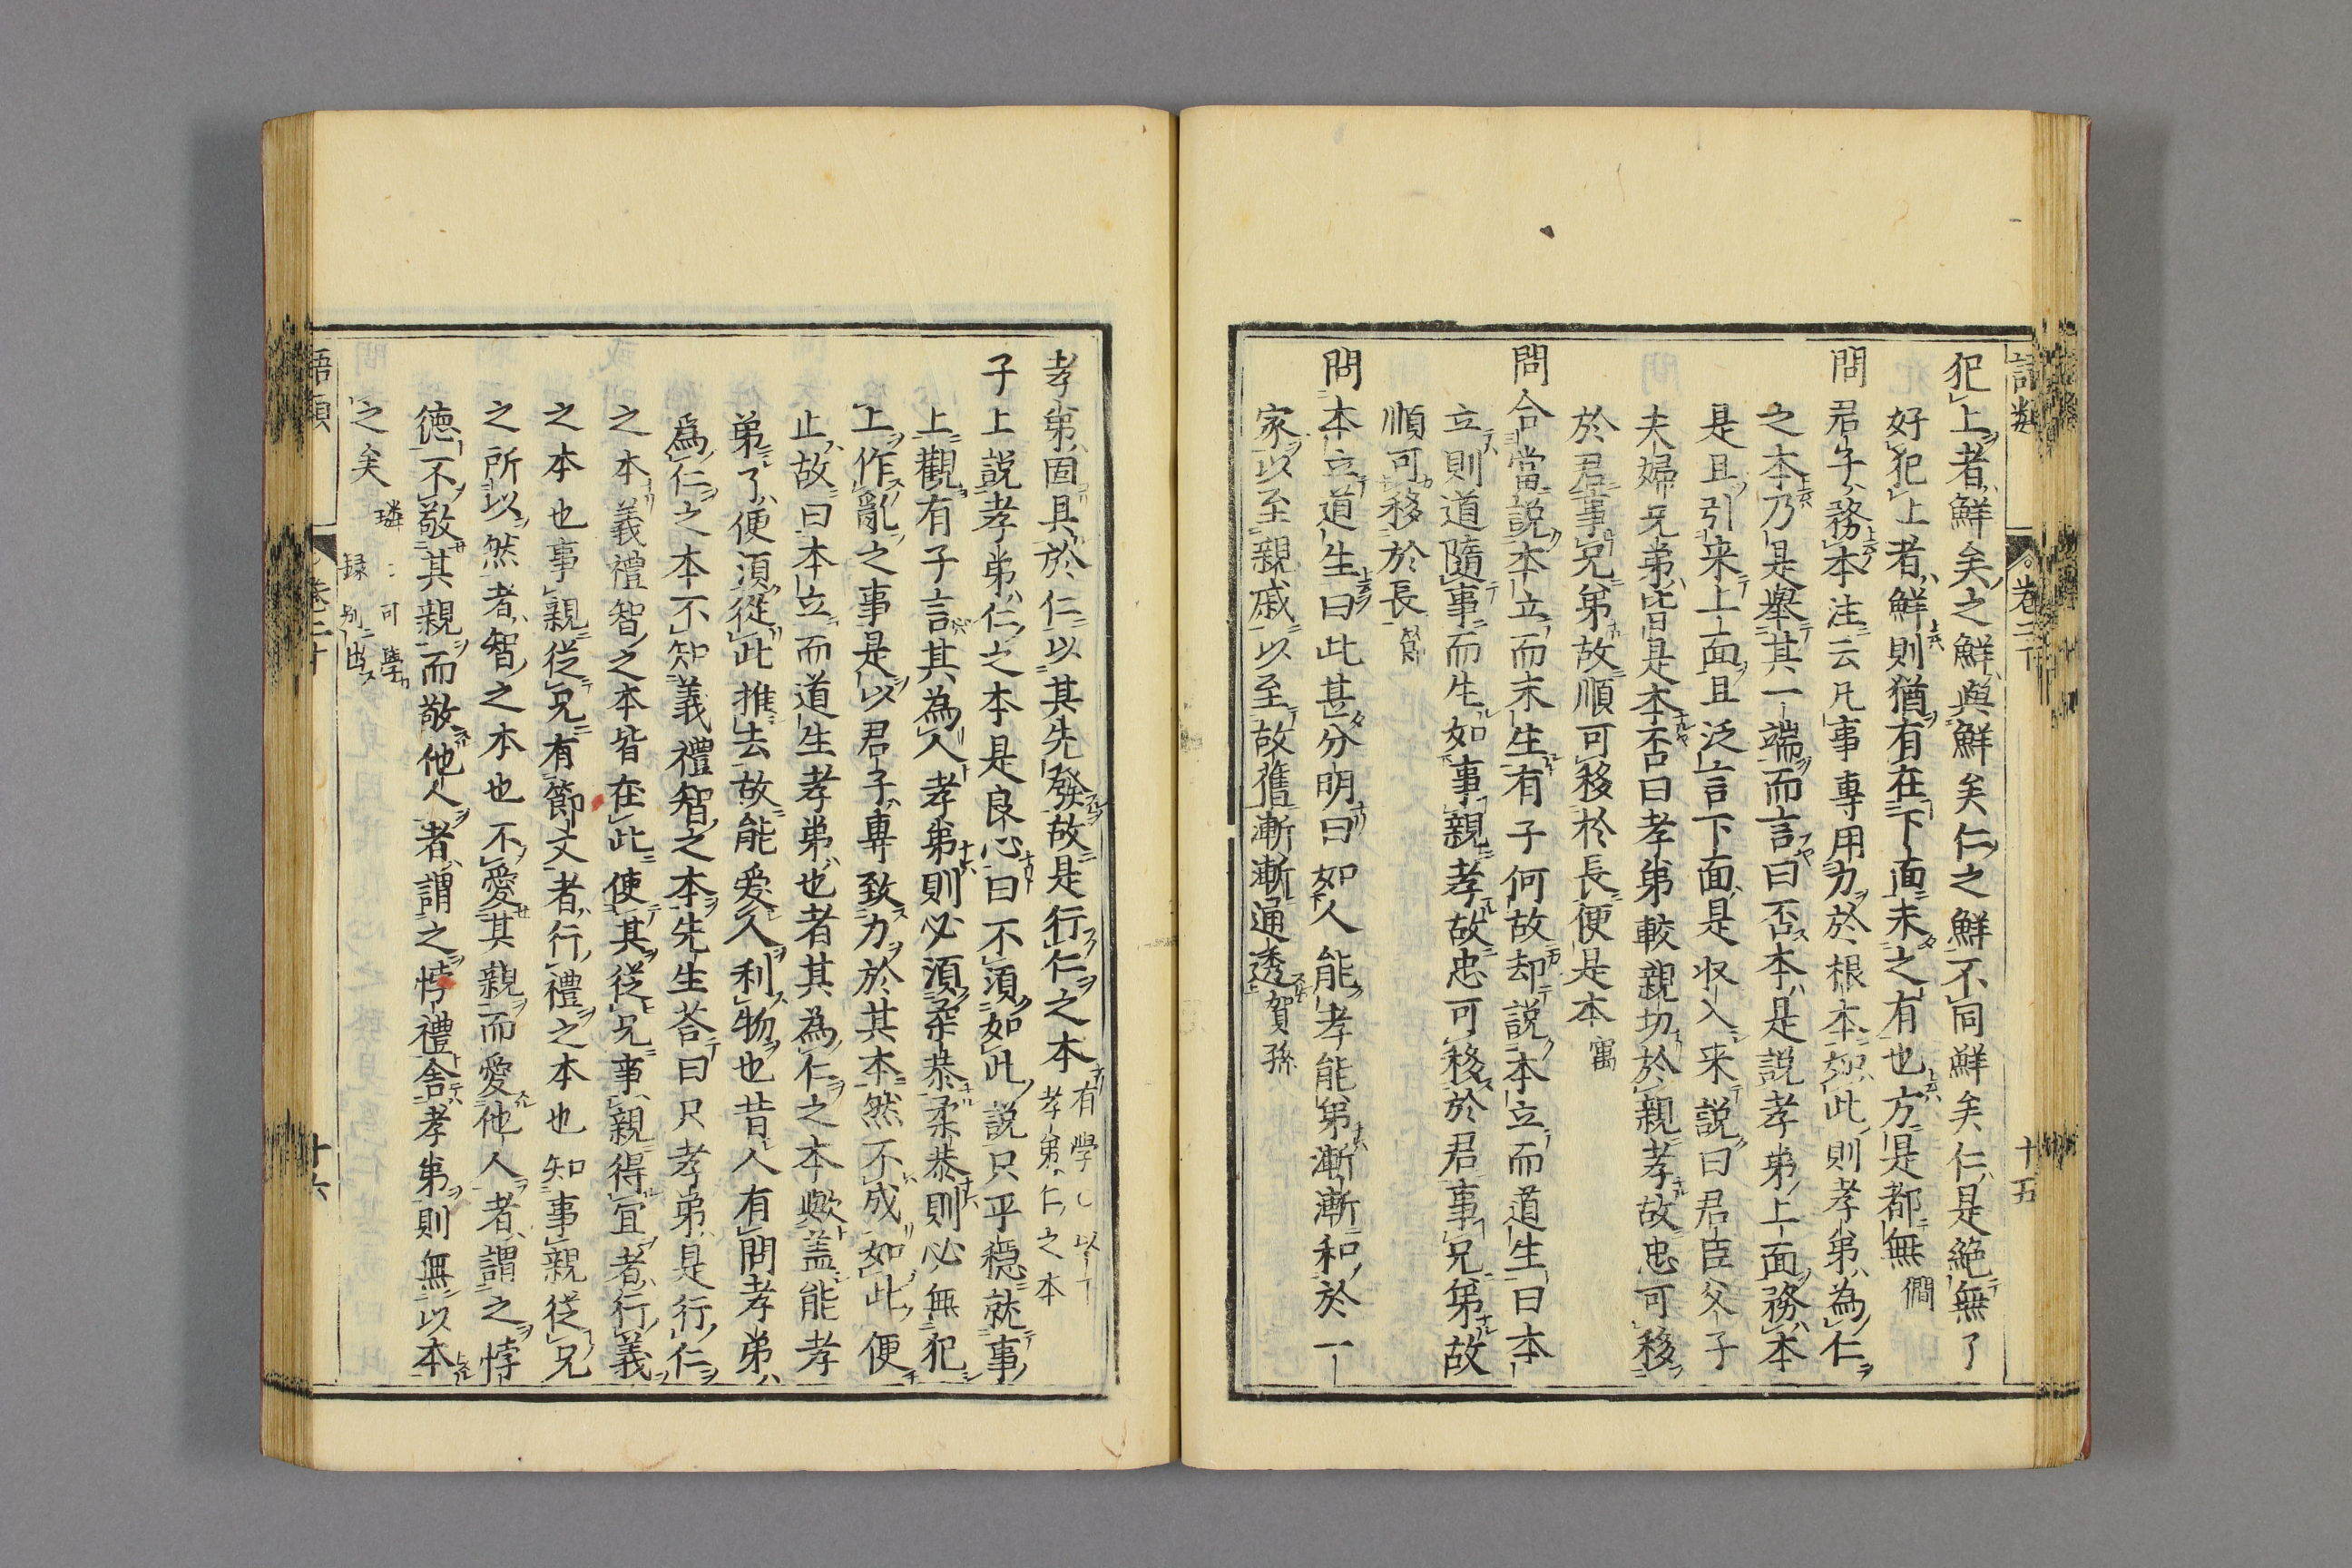 語類
卷二十
十五
犯上者鮮矣之鮮與鮮矣仁之鮮不同鮮矣仁是絕無了
好犯上者鮮則猶有在下面未之有也方是都無 僩
問君子務本注云凡事專用力於根本如此則孝弟為仁
之本乃是舉其一端而言曰否本是說孝弟上面務本
是且引来上面且泛言下面是收入来說曰君臣父子
夫婦兄弟皆是本否曰孝弟較親切於親孝故忠可移
於君事兄弟故順可移於長便是本 㝢
問合當說本立而末生有子何故却說本立而道生曰本
立則道隨事而生如事親孝故忠可移於君事兄弟故
順可移於長 節
問本立道生曰此甚分明曰如人能孝能弟漸漸和於一
家以至親戚以至故舊漸漸通透 賀孫
孝弟固具於仁以其先發故是行仁之本 可學〇以下孝弟仁之本
子上說孝弟仁之本是良心曰不須如此說只平穩就事
上觀有子言其為人孝弟則必須柔恭柔恭則必無犯
上作亂之事是以君子專致力於其本然不成如此便
止故曰本立而道生孝弟也者其為仁之本歟盖能孝
弟了便須從此推去故能愛人利物也昔人有問孝弟
爲仁之本不知義禮智之本先生荅曰只孝弟是行仁
之本義禮智之本皆在此使其從兄事親得宜者行義
之本也事親從兄有節文者行禮之本也知事親從兄
之所以然者智之本也不愛其親而愛他人者謂之悖
德不敬其親而敬他人者謂之悖禮舎孝弟則無以本
之矣 璘 可學録別出
語類
卷二十
十六